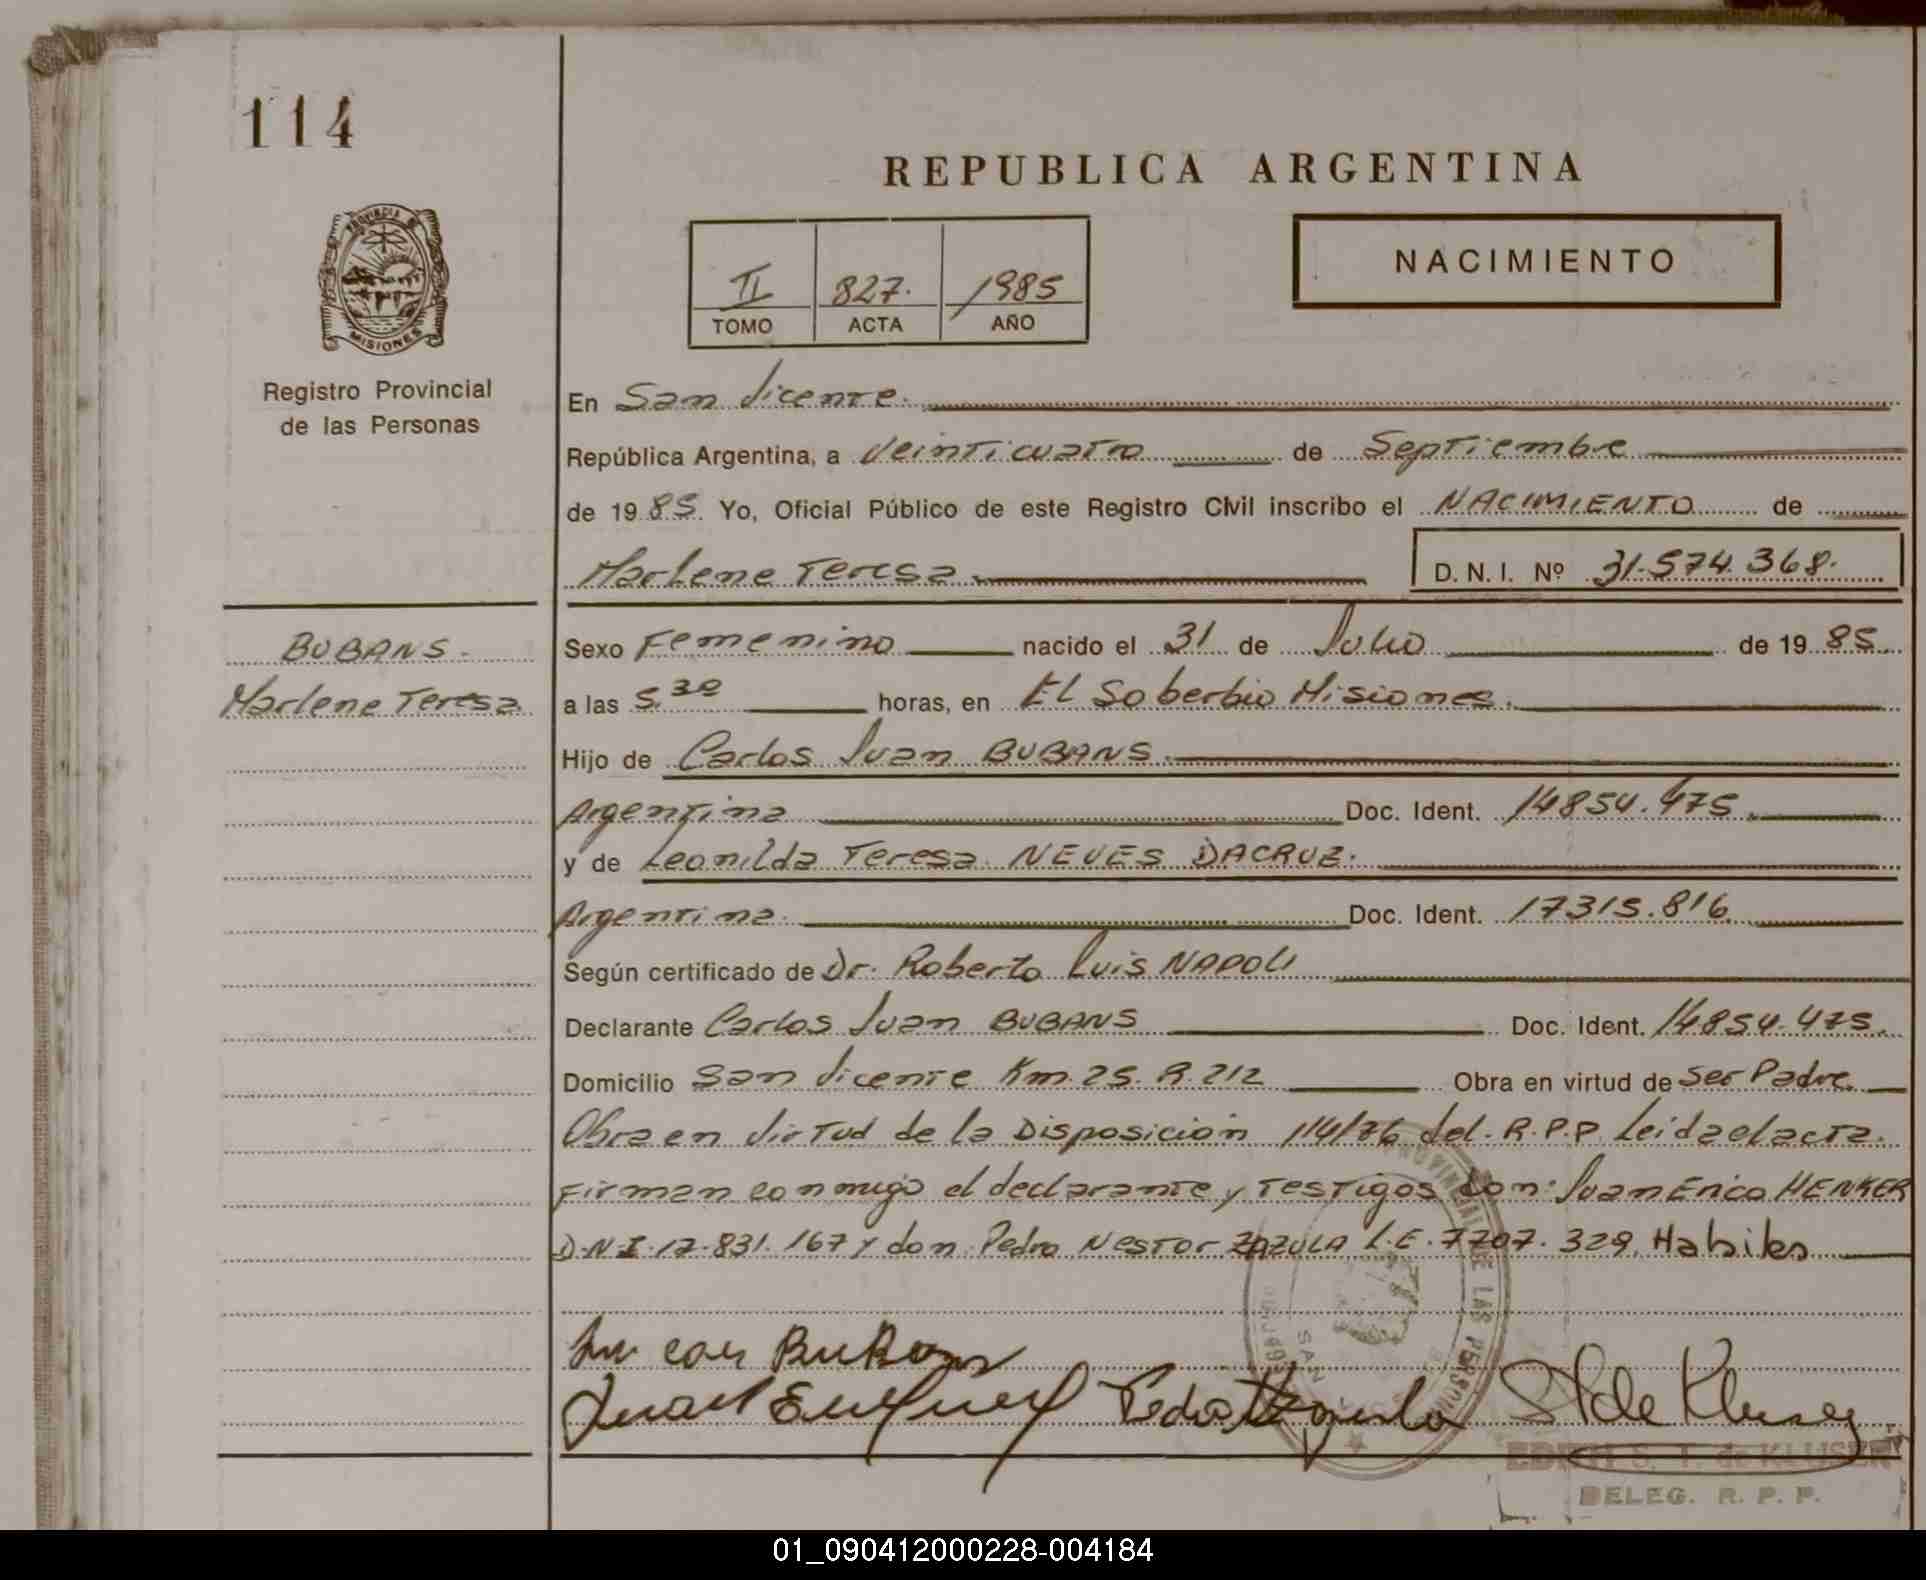 114
REPUBLICA ARGENTINA
PROVINCIA DE
MISIONES
Registro Provincial
de las Personas
II 827. 1985
TOMO ACTA AÑO
NACIMIENTO
En San Vicente.
República Argentina, a Veinticuatro de Septiembre
de 1985. Yo, Oficial Público de este Registro Civil inscribo el NACIMIENTO de
Marlene Teresa. D. N. I. Nº 31.574.368.
BUBANS.
Marlene Teresa
Sexo Femenino nacido el 31 de Julio de 1985.
a las 5.30 horas, en El Soberbio Misiones.
Hijo de Carlos Juan BUBANS.
Argentina Doc. Ident. 14854.475.
y de Leonilda Teresa NEVES DACRUZ.
Argentina. Doc. Ident. 17315.816
Según certificado de Dr. Roberto Luis NAPOLI
Declarante Carlos Juan BUBANS Doc. Ident. 14854.475.
Domicilio San Vicente Km. 25. R 212 Obra en virtud de ser Padre.
Obra en virtud de la Disposición 114/76 del. R.P.P. Leida el acta.
Firman conmigo el declarante y testigos don: Juan Erico HENKER
D.N.I. 17.831.167 y don Pedro Nestor ZAZULA L.E. 7707.329. Habiles
EDITH S. T. de KLUSER
DELEG. R. P. P.
01_090412000228-004184